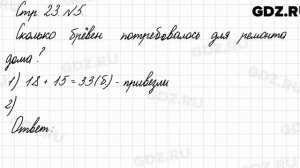 GDZ.RU
Стр. 23 №5.
Сколько брёвен потребовалось для ремонта
дома?
1) 18 + 15 = 33 (б) - привезли
2)
Ответ:
GDZ.RU